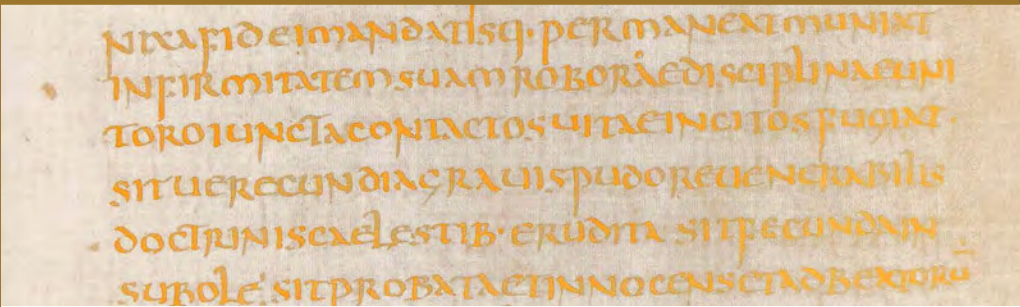 NIXAFIDEIMANDATISQ·PERMANEATMUNIAT
INFIRMITATEMSUAMROBORAEDISCIPLINAEUNI
TOROIUNCTACONTACTOSUITAEINCITOSFUGIAT·
SITUERECUNDIAGRAUISPUDOREUENERABILIS
DOCTRINISCAELESTIB·ERUDITA SITFECUNDAIN
SUBOLE SITPROBATAETINNOCENSETADBEATORU